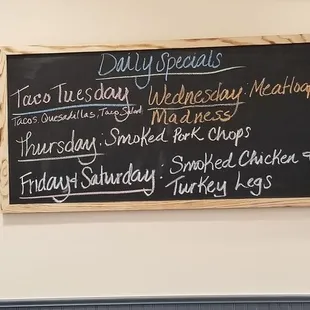 Daily Specials
Taco Tuesday
Tacos, Quesadillas, Taco Salad
Wednesday: Meatloaf
Madness
Thursday: Smoked Pork Chops
Friday & Saturday: Smoked Chicken &
Turkey Legs